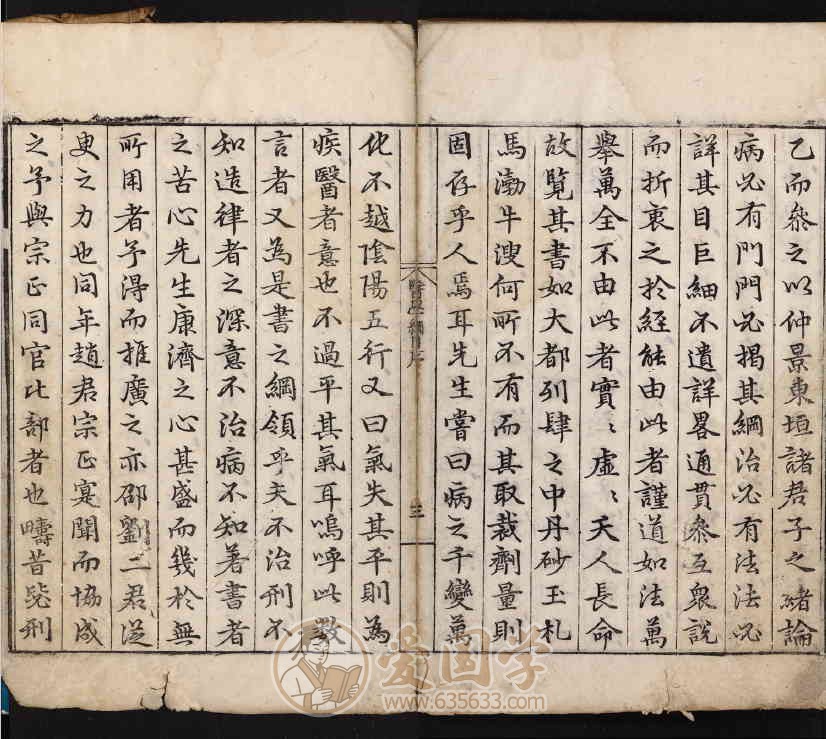 乙而叅之以仲景東垣諸君子之緒論
病必有門門必揭其綱治必有法法必
詳其目巨細不遺詳畧通貫叅互衆說
而折衷之於經能由此者謹道如法萬
舉萬全不由此者實〻虛〻夭人長命
故覽其書如大都列肆之中丹砂玉札
馬渤牛溲何所不有而其取裁劑量則
固存乎人焉耳先生嘗曰病之千變萬
醫學綱目序
三
化不越陰陽五行又曰氣失其平則為
疾醫者意也不過平其氣耳嗚呼此數
言者又為是書之綱領乎夫不治刑不
知造律者之深意不治病不知著書者
之苦心先生康濟之心甚盛而幾於無
所用者予得而推廣之亦邵劉二君從
臾之力也同年趙君宗正寔聞而協成
之予與宗正同官比部者也疇昔毖刑
爱国学
www.635633.com